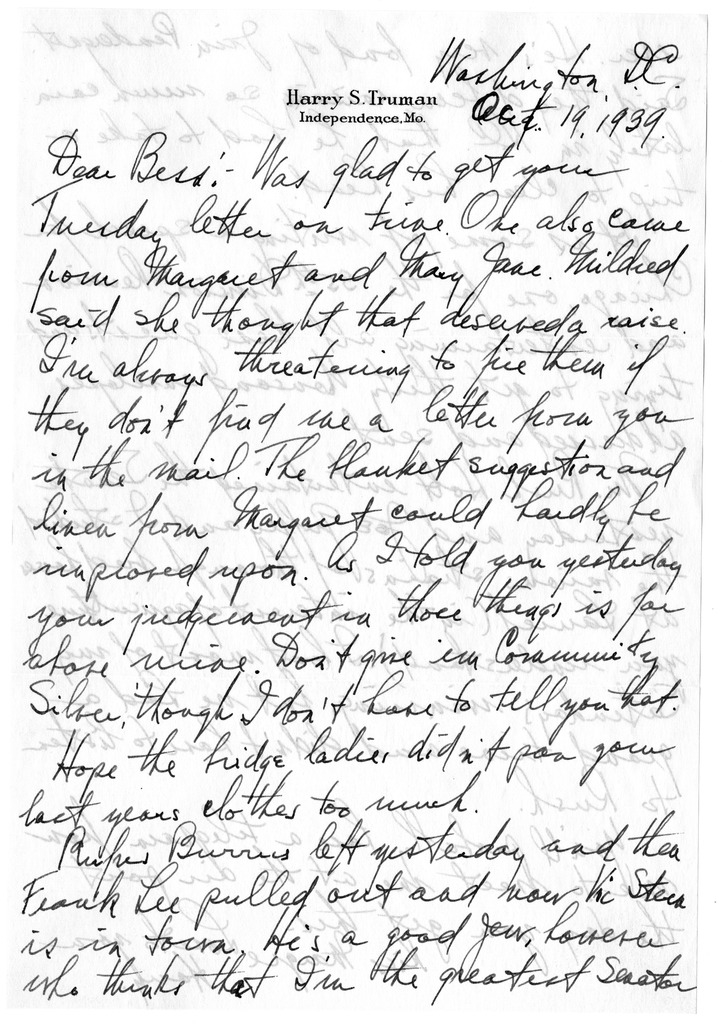 Washington, D.C.
Harry S. Truman
Independence, Mo.
Oct. 19, 1939.
Dear Bess:- Was glad to get your
Tuesday letter on time. One also came
from Margaret and Mary Jane. Mildred
said she thought that deserved a raise.
I'm always threatening to fire them if
they don't find me a letter from you
in the mail. The blanket suggestion and
linen from Margaret could hardly be
improved upon. As I told you yesterday
your judgement in those things is far
above mine. Don't give 'em Community
Silver, though I don't have to tell you that.
Hope the bridge ladies didn't pan your
last years clothes too much.
Rufus Burrus left yesterday and then
Frank Lee pulled out and now Vic Stern
is in town. He's a good Jew, however
who thinks that I'm the greatest Senator